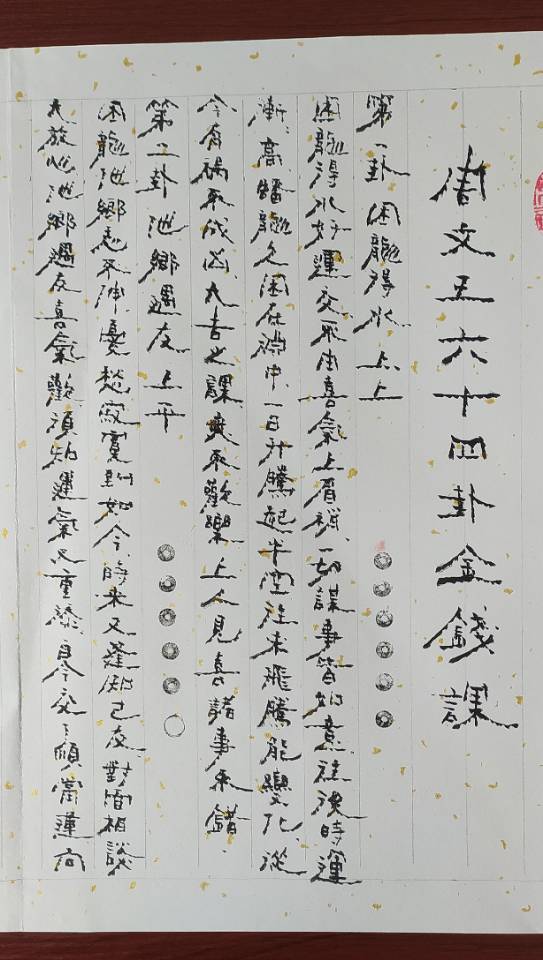 周文王六十四卦金錢課
第一卦 困龍得水 上上
困龍得水好運交 不由喜氣上眉稍、一切謀事皆如意、往後時運
漸、高、蟠龍久困在淵中、一日升騰起半空 往來飛騰能變化、從
今有禍不成凶、大吉之課 喪不歡樂 上人見喜 諸事不錯、
第二卦 池鄉遇友 上平
困龍池鄉志不伸 憂愁寂寞到如今、時來又逢知己友 對面相談
大放心 池鄉遇友喜氣歡 須知運氣又重添、自今交了順當運 向